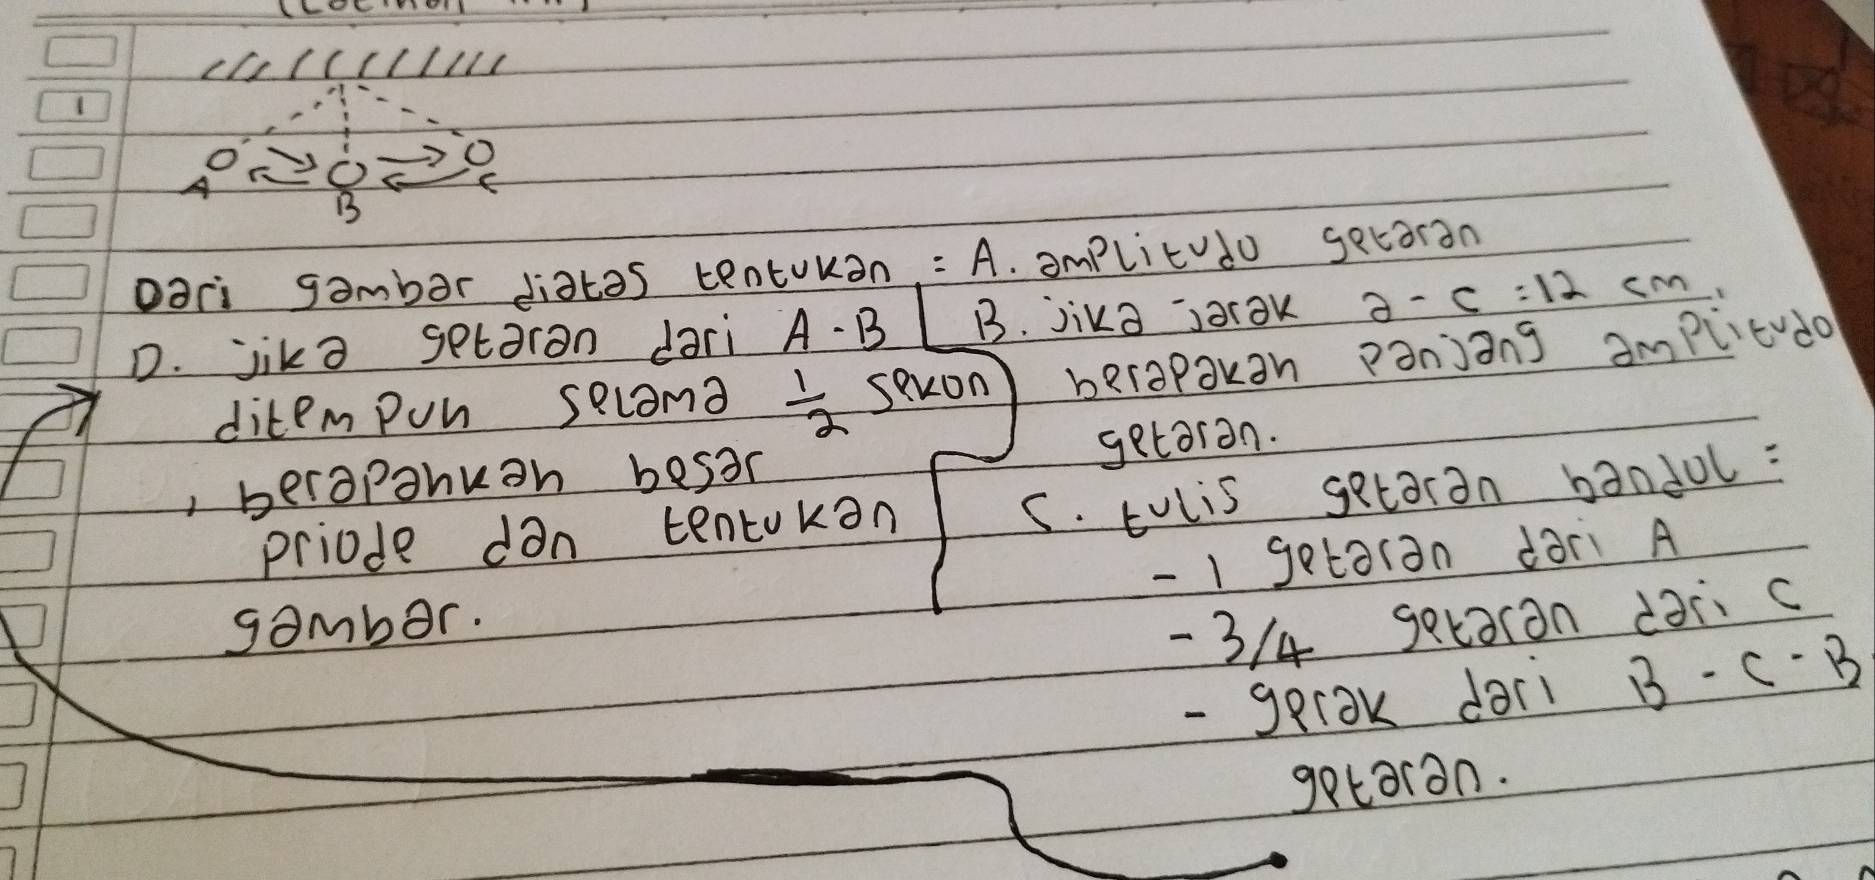 1
A
B
C
Dari gambar diatas tentukan : A. amplitudo getaran
B. jika jarak a - c = 12 cm,
berapakah panjang amplitudo
getaran.
C. tulis getaran bandul :
- 1 getaran dari A
- 3/4 getaran dari C
- gerak dari B - C - B
getaran.
D. jika getaran dari A - B
ditempuh selama 1/2 sekon
, berapahkah besar
priode dan tentukan
gambar.